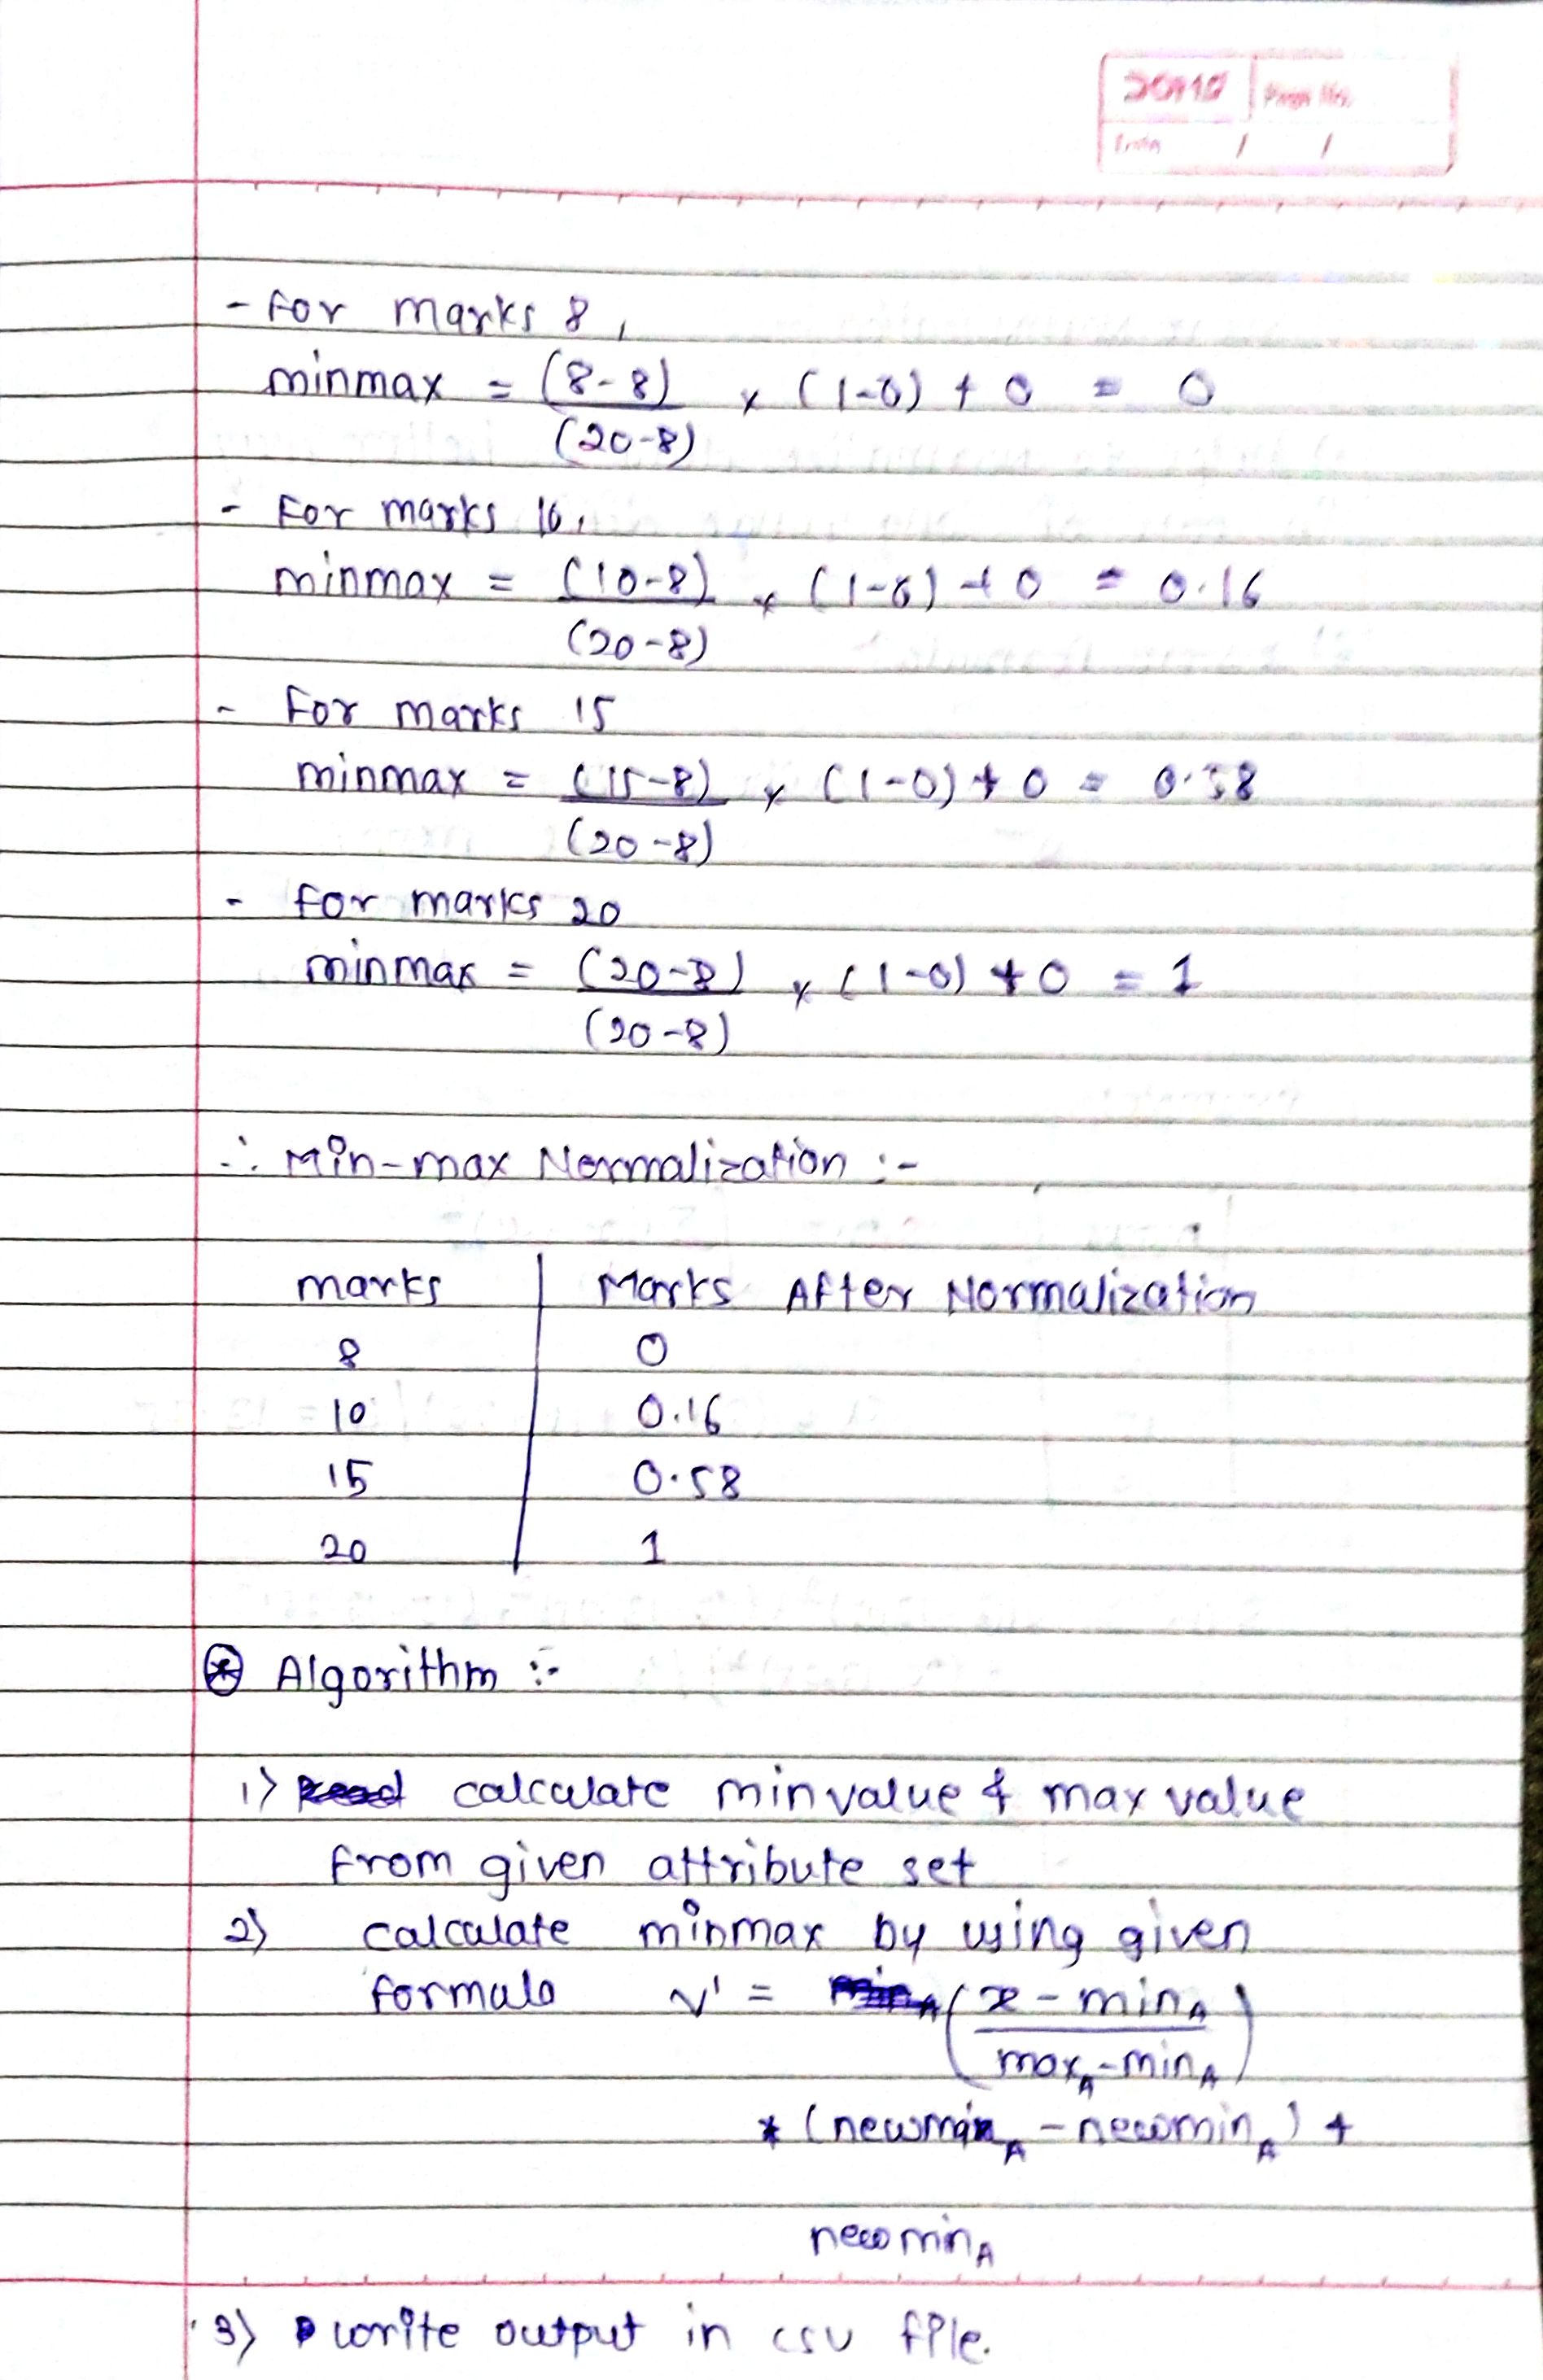 Page No.
Date / /
- For marks 8,
minmax = (8-8) × (1-0) + 0 = 0
(20-8)
- For marks 10,
minmax = (10-8) × (1-0) + 0 = 0.16
(20-8)
- For marks 15
minmax = (15-8) × (1-0) + 0 = 0.58
(20-8)
- for marks 20
minmax = (20-8) × (1-0) + 0 = 1
(20-8)
∴ Min-max Normalization :-
marks | Marks After Normalization
8 | 0
10 | 0.16
15 | 0.58
20 | 1
⊛ Algorithm :-
1) calculate min value & max value
from given attribute set
2) calculate minmax by using given
formula v' = (x - minA
maxA - minA)
* (newmaxA - newminA) +
newminA
3) write output in csv file.